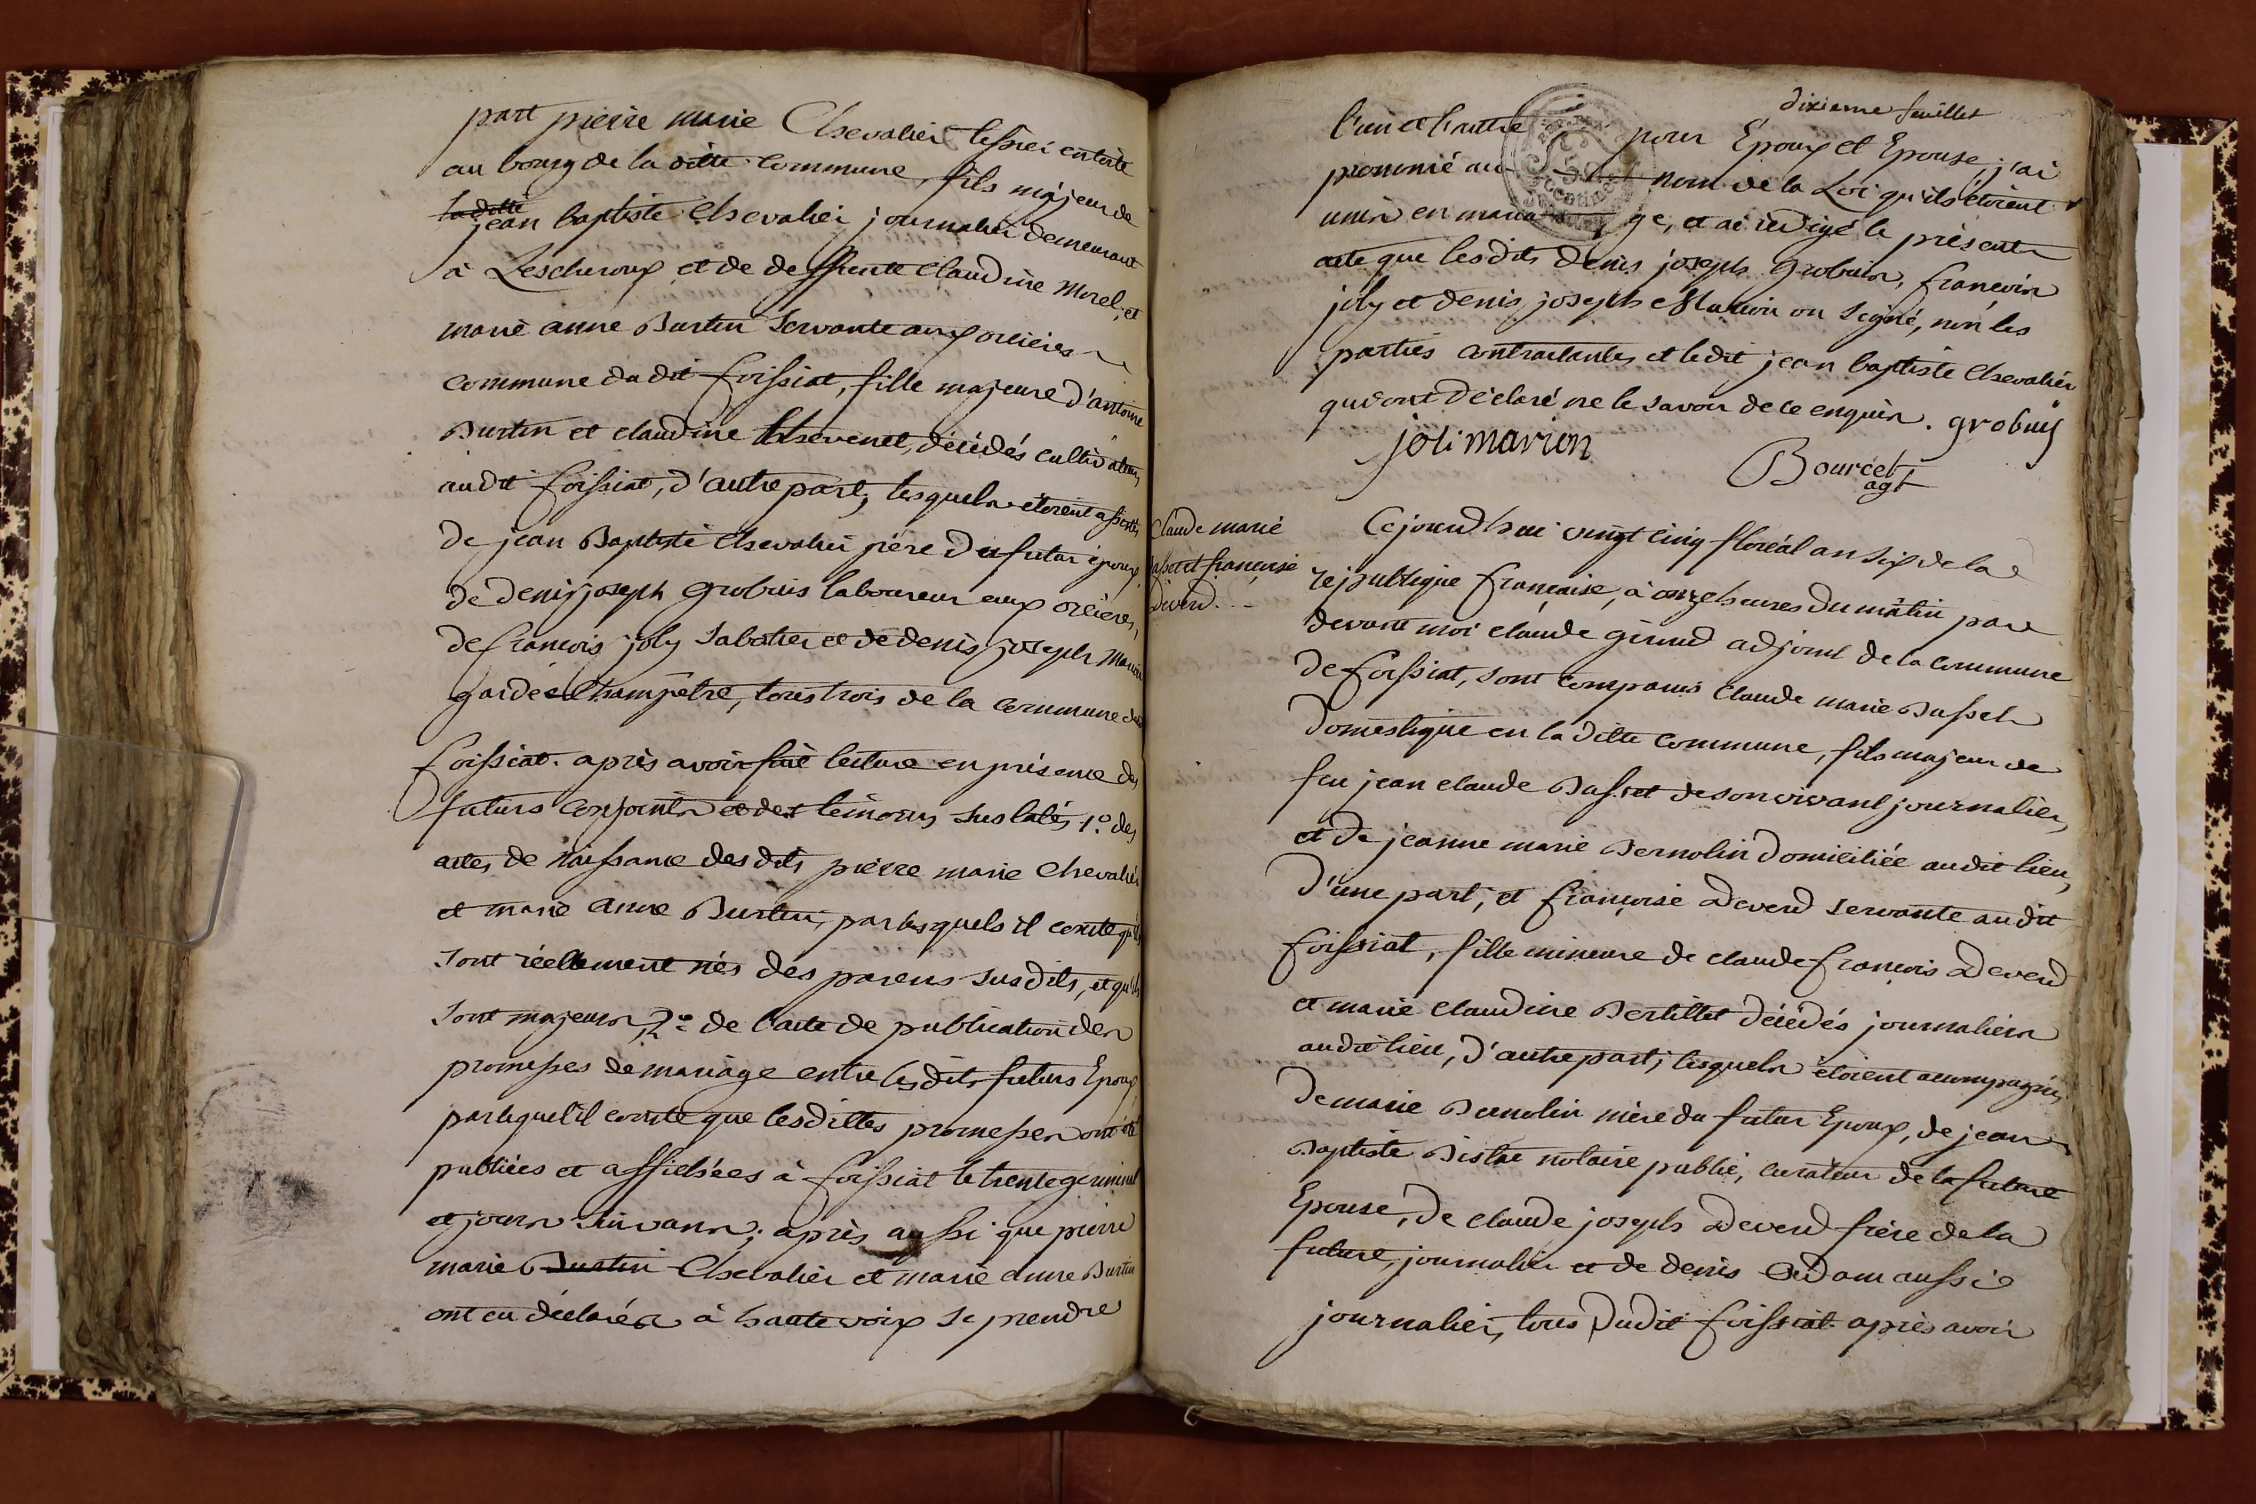 part pierre marie Chevalier tissier en toile
au bourg de la ditte commune, fils majeur de
la ditte
jean baptiste Chevalier journalier demeurant
à Lescheroux et de deffunte Claudine Morel, et
marie anne Burtin servante aux orcières
commune du dit foissiat, fille majeure d'antoine
Burtin et claudine Thevenet, décédés cultivateurs
audit foissiat, d'autre part, lesquels étoient assistés
de jean Baptiste Chevalier père du futur époux,
de denis joseph grobuis laboureur aux orcières,
de françois joly sabotier et de denis joseph Marion
garde champêtre, tous trois de la commune de
foissiat. après avoir fait lecture en présence des
futurs conjoints et des témoins susdatés, 1.° des
actes de naissance desdits pierre marie Chevalier
et marie anne Burtin, par lesquels il conste qu'ils
sont réellement nés des parens susdits, et qu'ils
sont majeurs, 2.° de l'acte de publication des
promesses de mariage entre lesdits futurs Epoux,
par lequel il conste que lesdittes promesses ont été
publiées et affichées à foissiat le trente germinal
et jours suivans; après aussi que pierre
marie Burtin Chevalier et marie anne Burtin
ont eu déclarés à haute voix se prendre
dixieme feuillet
l'un et l'autre pour Epoux et Epouse, j'ai
prononcé au nom de la Loi qu'ils étoient
unis en maria ge, et ai rédigé le présent
acte que lesdits denis joseph grobuis, françois
joly et denis joseph Marion on signé, non les
parties contractantes et ledit jean baptiste Chevalier
qui ont déclaré ne le savoir de ce enquis. grobuis
joli marion
Bourcet
agt
Claude marie
basset et françoise
deverd.
Cejourd'hui vingt cinq floréal an six de la
république française, à onze heures du mâtin par
devant moi claude girud adjoint de la commune
de foissiat, sont comparus claude marie Basset
domestique en la ditte commune, fils majeur de
feu jean claude Basset de son vivant journalier,
et de jeanne marie Bernolin domiciliée audit lieu,
d'une part, et françoise deverd servante audit
foissiat, fille mineure de claude françois deverd
et marie claudine Bertillet décédés journaliers
audit lieu, d'autre part; lesquels étoient accompagnés
de marie Bernolin mère du futur Epoux, de jean
Baptiste notaire public, curateur de la future
Epouse, de claude joseph deverd frère de la
future, journalier et de denis Adam aussi
journalier, tous dudit foissiat. après avoir